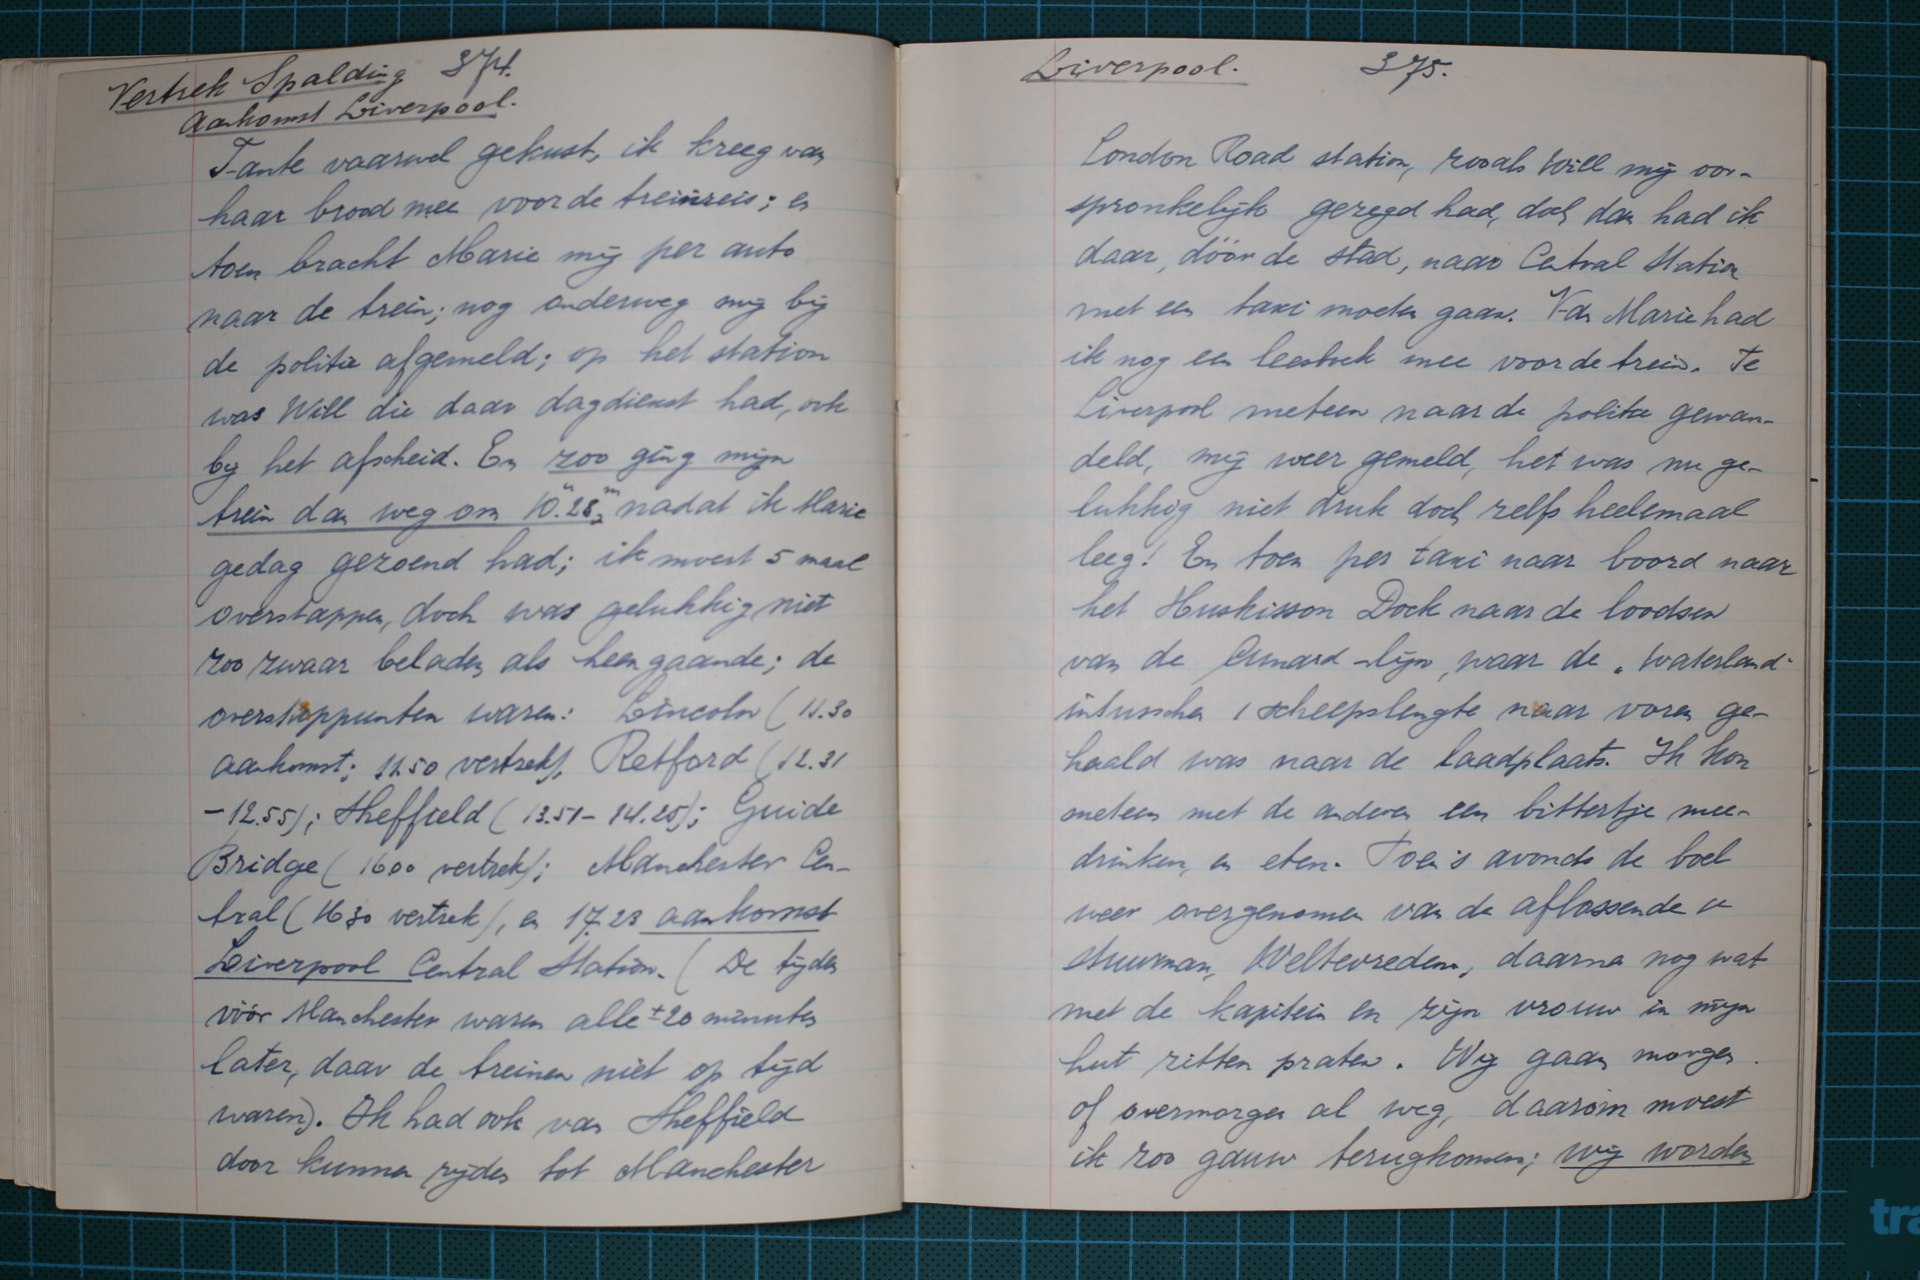 Vertrek Spalding 374.
Aankomst Liverpool.
Tante vaarwel gekust, ik kreeg van
haar brood mee voor de treinreis; en
toen bracht Marie mij per auto
naar de trein; nog onderweg mij bij
de politie afgemeld; op het station
was Will die daar dagdienst had, ook
bij het afscheid. En zoo ging mijn
trein dan weg om 10.u28m, nadat ik Marie
gedag gezoend had; ik moest 5 maal
overstappen, doch was gelukkig niet
zoo zwaar beladen als heengaande; de
overstappunten waren: Lincoln (11.30
aankomst; 11.50 vertrek), Retford (12.31
- 12.55); Sheffield (13.51 - 14.25); Guide
Bridge (1600 vertrek); Manchester Cen-
tral (1630 vertrek), en 17.23 aankomst
Liverpool Central Station. (De tijden
vóór Manchester waren alle ± 20 minuten
later, daar de treinen niet op tijd
waren). Ik had ook van Sheffield
door kunnen rijden tot Manchester
Liverpool. 375.
London Road station, zooals Will mij oor-
spronkelijk gezegd had, doch dan had ik
daar, dóór de stad, naar Central Station
met een taxi moeten gaan. Van Marie had
ik nog een leesboek mee voor de trein. Te
Liverpool meteen naar de politie gewan-
deld, mij weer gemeld, het was nu ge-
lukkig niet druk doch zelfs heelemaal
leeg! En toen per taxi naar boord naar
het Huskisson Dock naar de loodsen
van de Cunard-lijn, waar de „Waterland"
intusschen 1 scheepslengte naar voren ge-
haald was naar de laadplaats. Ik kon
meteen met de anderen een bittertje mee-
drinken, en eten. Toen 's avonds de boel
weer overgenomen van de aflossende
stuurman, Weltevreden, daarna nog wat
met de kapitein en zijn vrouw in mijn
hut zitten praten. Wij gaan morgen
of overmorgen al weg, daarom moest
ik zoo gauw terugkomen; wij worden
tra